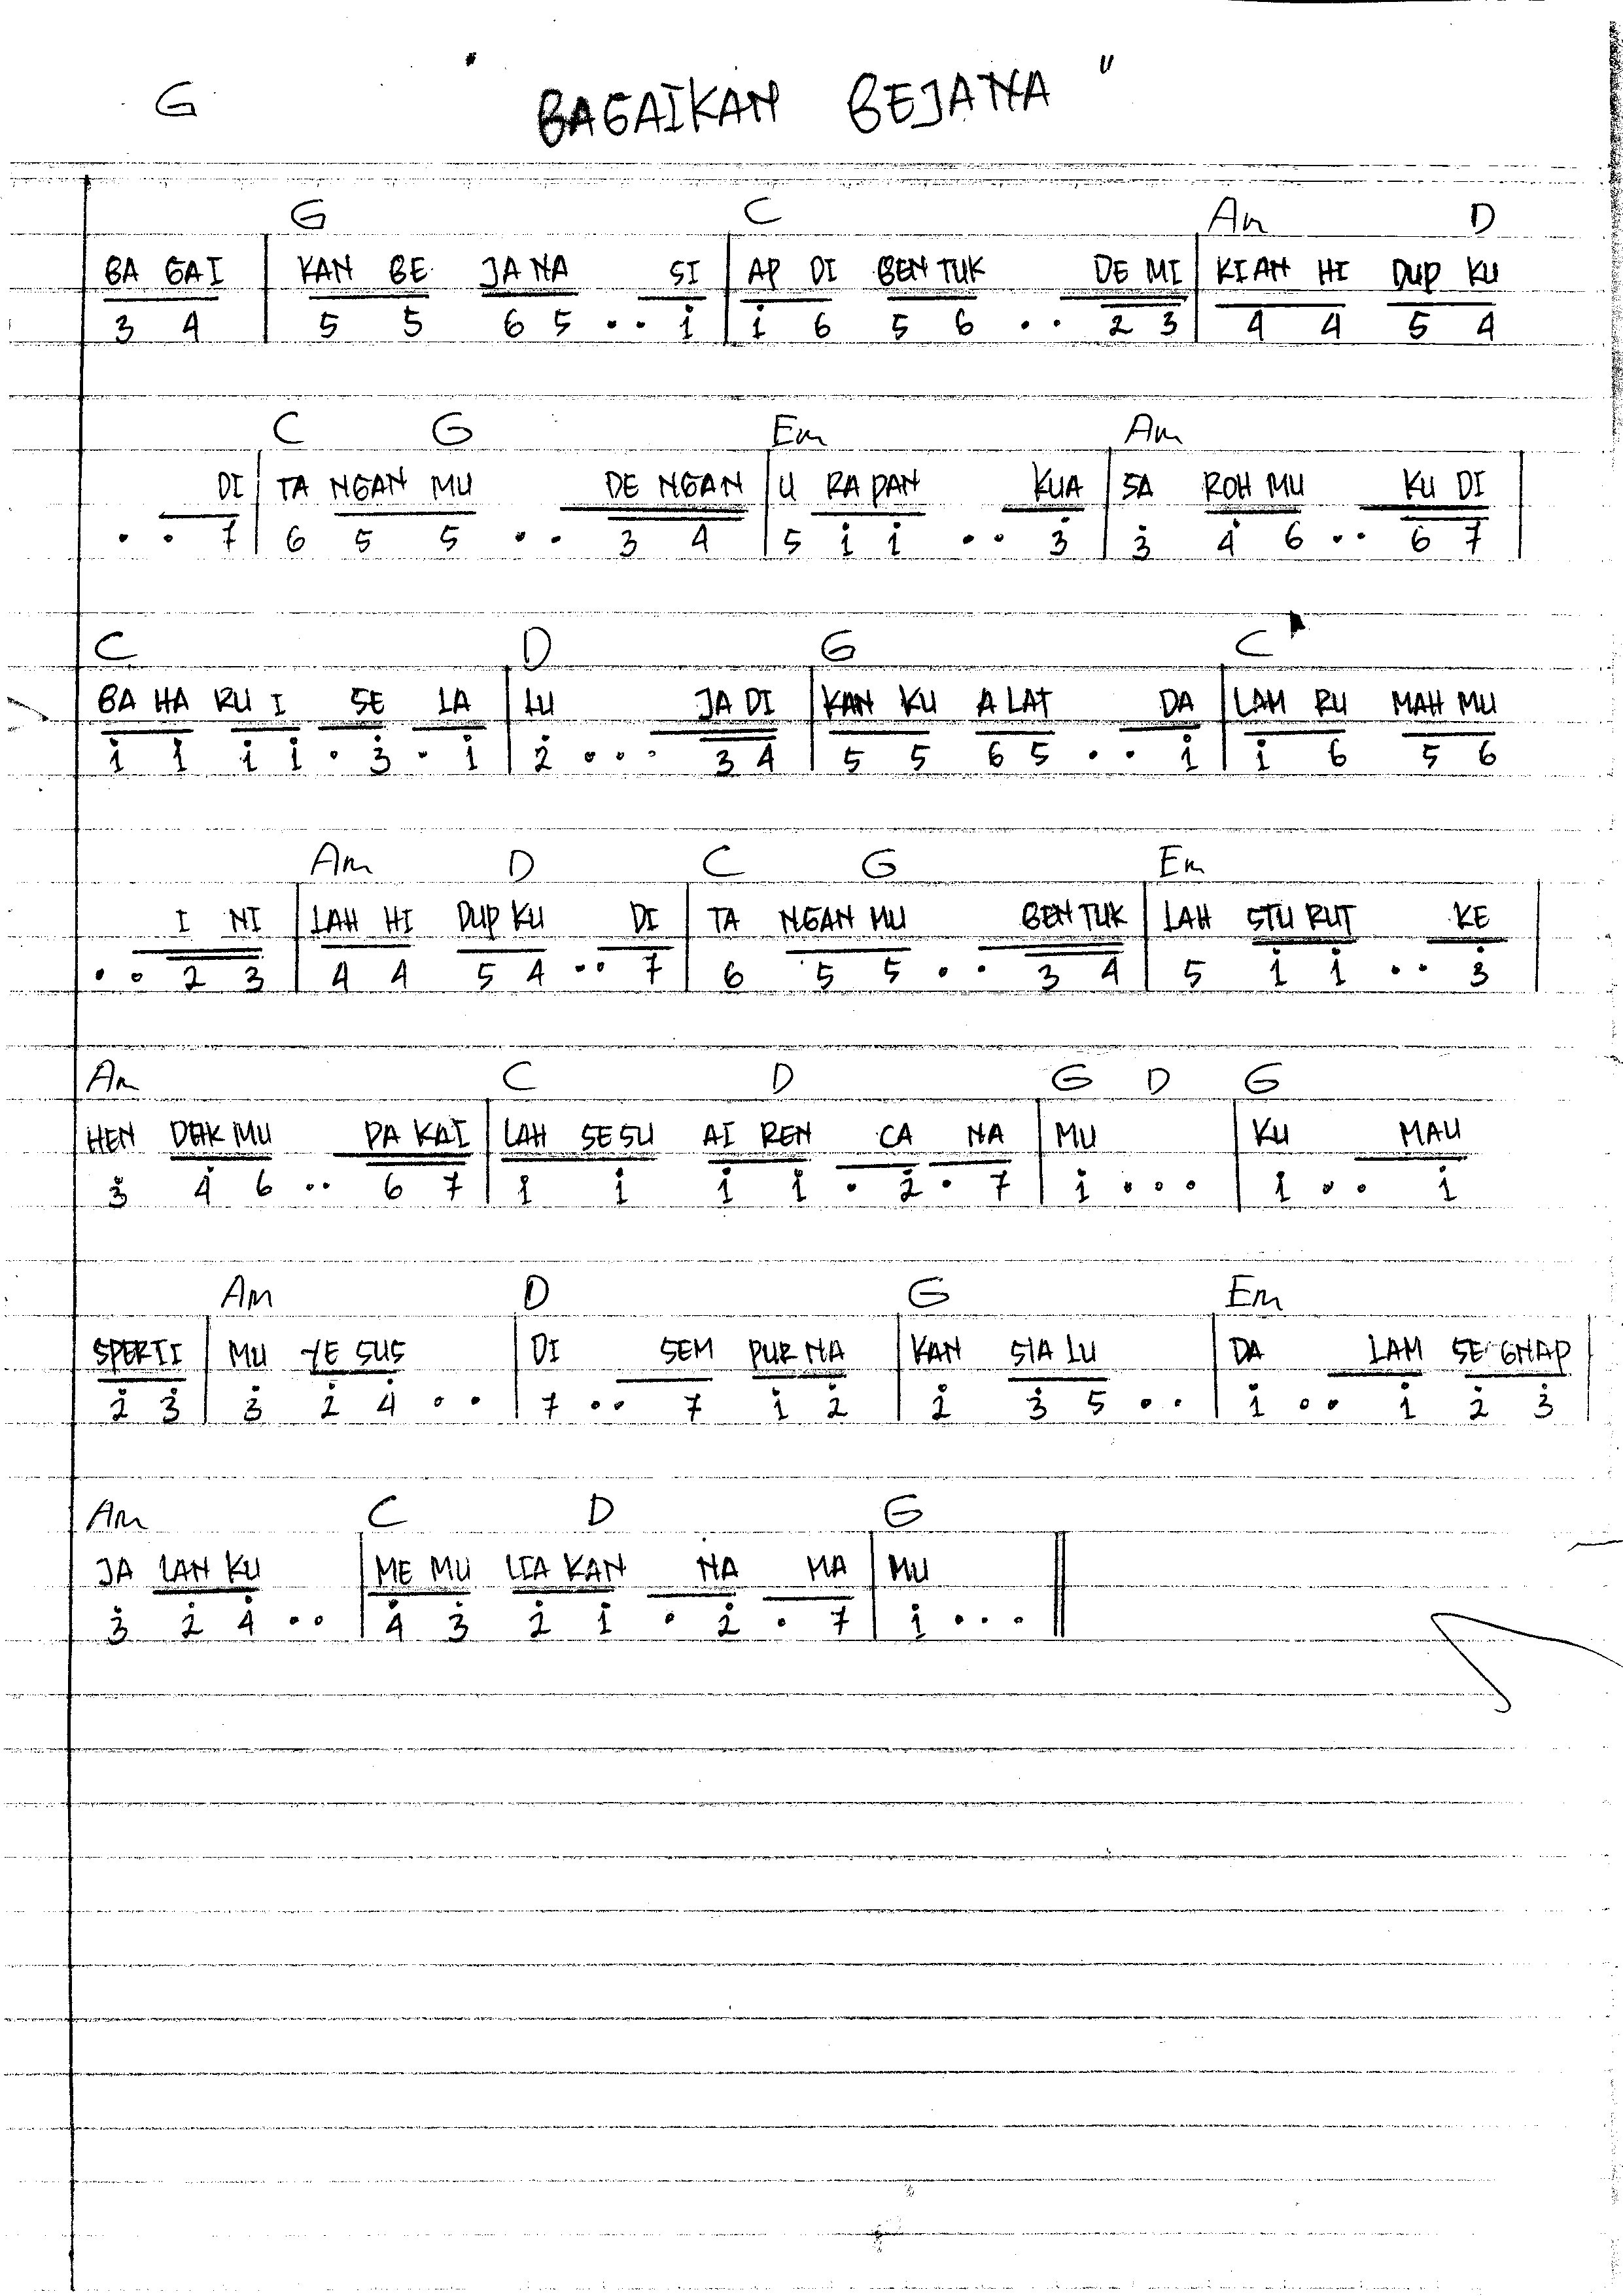 G " BAGAIKAN BEJANA "
G C Am D
BA GAI | KAN BE JA NA SI | AP DI BEN TUK DE MI | KIAN HI DUP KU
3 4 | 5 5 6 5 . . i | i 6 5 6 . . 2 3 | 4 4 5 4
C G Em Am
DI | TA NGAN MU DE NGAN | U RA PAN KUA | SA ROH MU KU DI |
. . 7 | 6 5 5 . . 3 4 | 5 i i . . 3̇ | 3̇ 4̇ 6 . . 6 7 |
C D G C
BA HA RU I SE LA | LU JA DI | KAN KU A LAT DA | LAM RU MAH MU
i i i i . 3̇ . i | 2̇ . . . 3 4 | 5 5 6 5 . . i | i 6 5 6
Am D C G Em
I NI | LAH HI DUP KU DI | TA NGAN MU BEN TUK | LAH STU RUT KE |
. . 2 3 | 4 4 5 4 . . 7 | 6 5 5 . . 3 4 | 5 i i . . 3̇ |
Am C D G D G
HEN DAK MU PA KAI | LAH SE SU AI REN CA NA | MU | KU MAU
3̇ 4̇ 6 . . 6 7 | i i i i . 2̇ . 7 | i . . . | i . . i
Am D G Em
SPERTI | MU YE SUS | DI SEM PUR NA | KAN SLA LU | DA LAM SE GNAP |
2̇ 3̇ | 3̇ 2̇ 4̇ . . | 7 . . 7 i 2̇ | 2̇ 3̇ 5 . . | i . . i 2̇ 3̇ |
Am C D G
JA LAN KU | ME MU LIA KAN NA MA | MU ||
3̇ 2̇ 4̇ . . | 4̇ 3̇ 2̇ i . 2̇ . 7 | i . . . ||